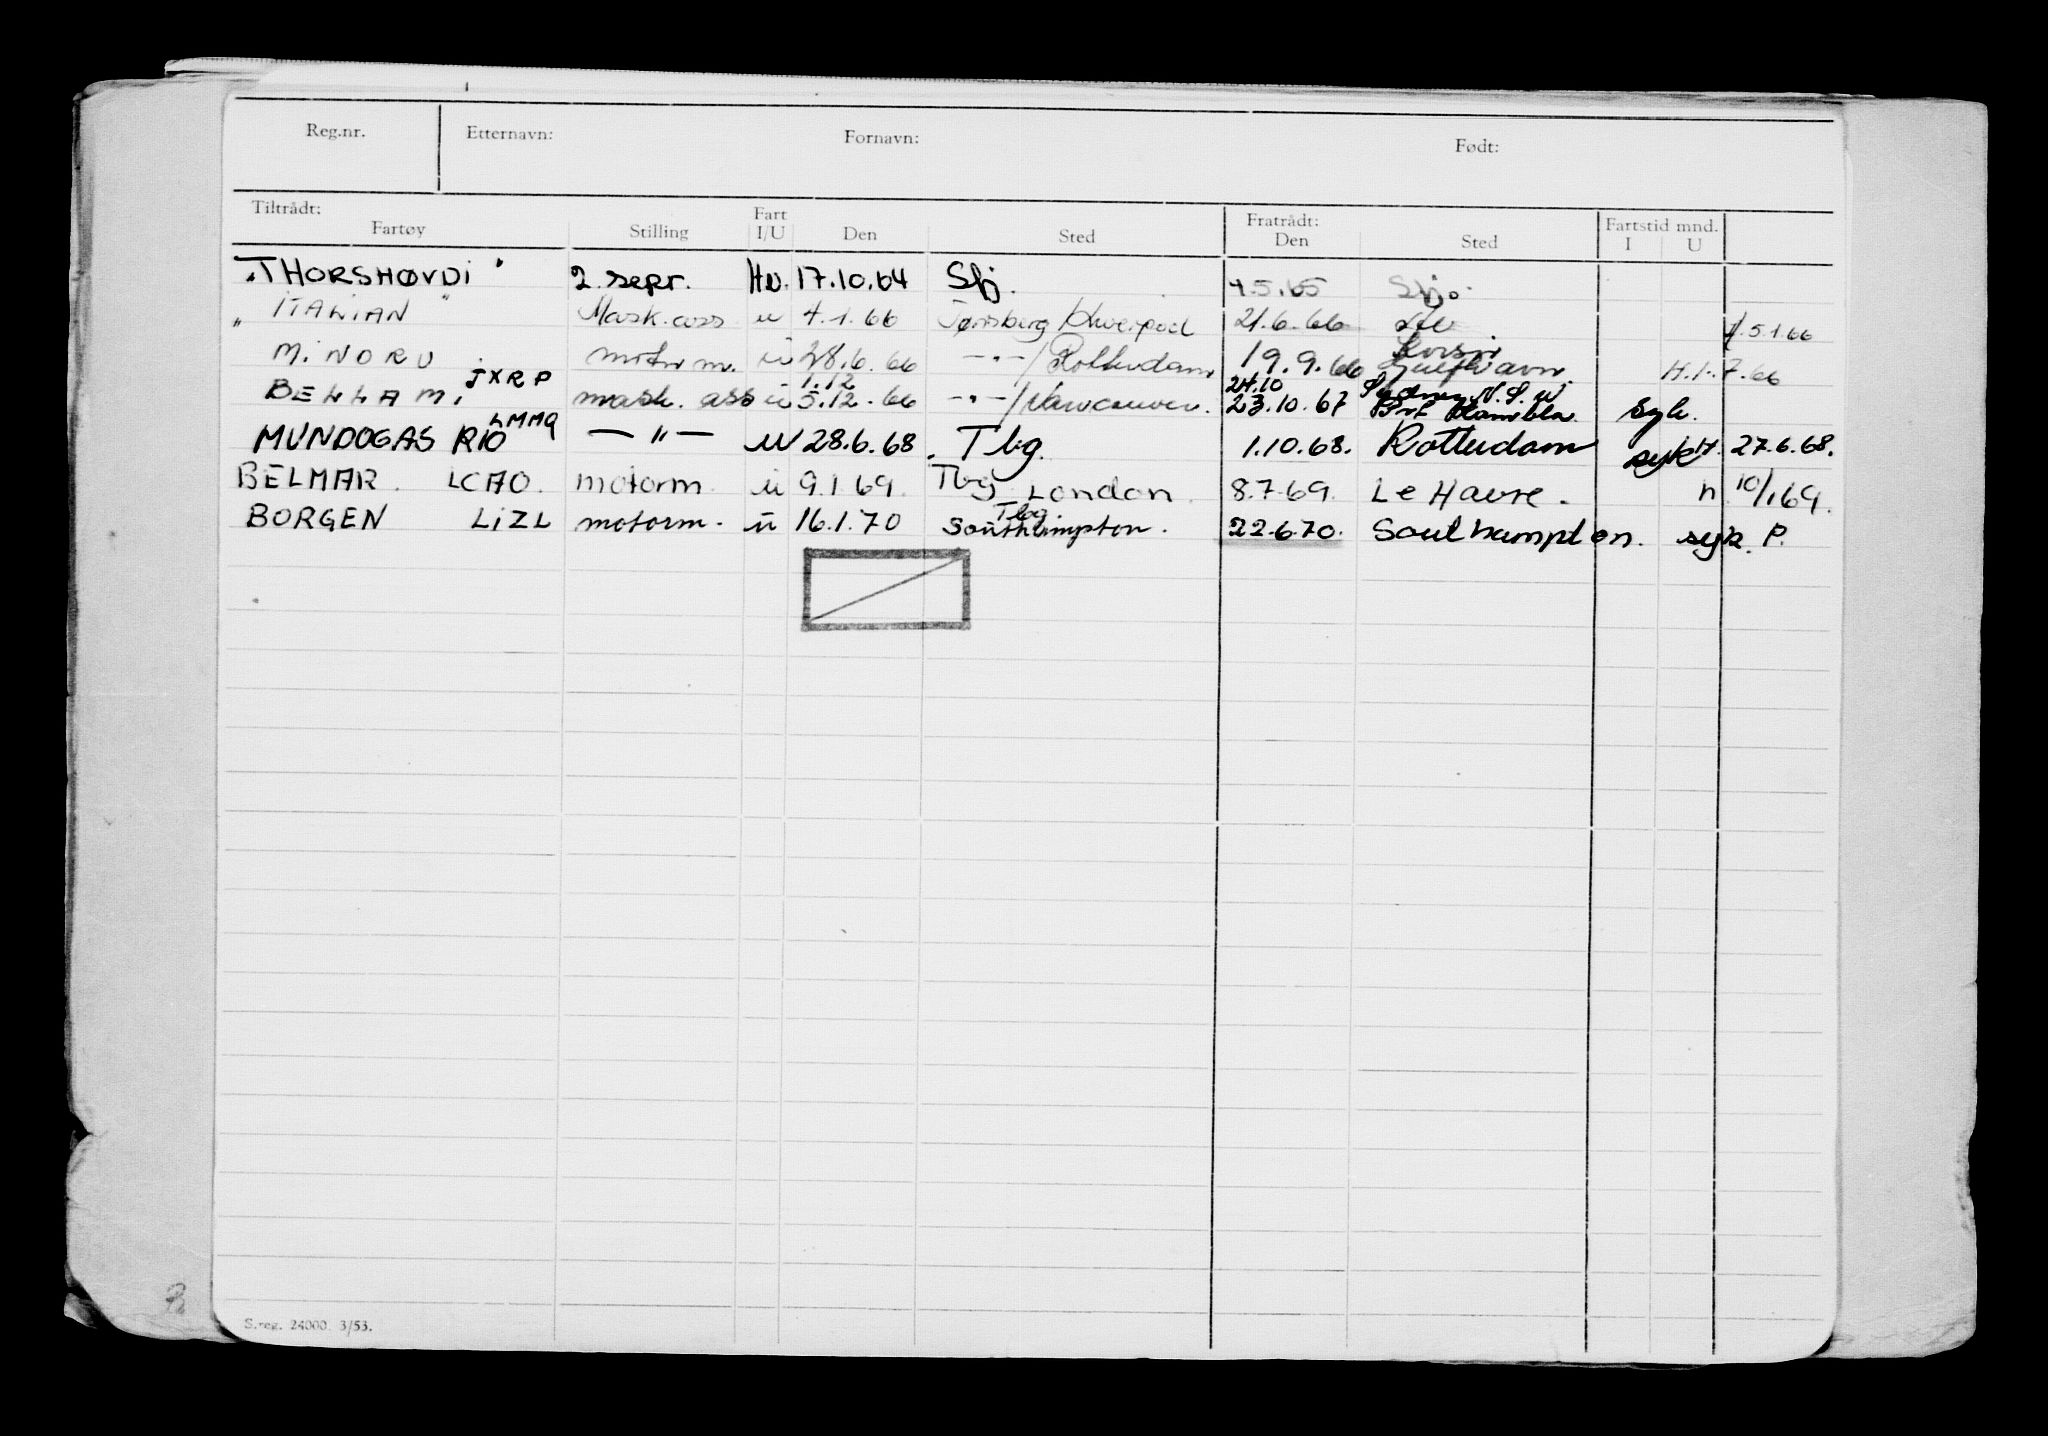 Reg.nr. Etternavn: Fornavn: Født:
Tiltrådt: Fartøy Stilling Fart I/U Den Sted Fratrådt: Den Sted Fartstid mnd. I U
"THORSHØVDI" 2. sepr. Hv. 17.10.64 Sfj. 4.5.65 Sfj.
"ITALIAN" Mask.ass u 4.1.66 Tønsberg/Liverpool 21.6.66 5.1.66
MINORU motorm. u 28.6.66 -"-/Rotterdam 19.9.66 H.1.7.66
1.12 24.10 Sydney N.S.W
BELLAMI JXRP mask. ass u 5.12.66 -"-/Vancouver. 23.10.67 Port Kembla syk.
MUNDOGAS RIO LMMQ -"- u 28.6.68 Tbg. 1.10.68. Rotterdam syk H. 27.6.68.
BELMAR. LCAO. motorm. u 9.1.69. Tbg London. 8.7.69. Le Havre. n 10/1.69.
Tbg
BORGEN LIZL motorm. u 16.1.70 Southampton. 22.6.70. Southampton. syk. P.
S.reg. 24000. 3/53.